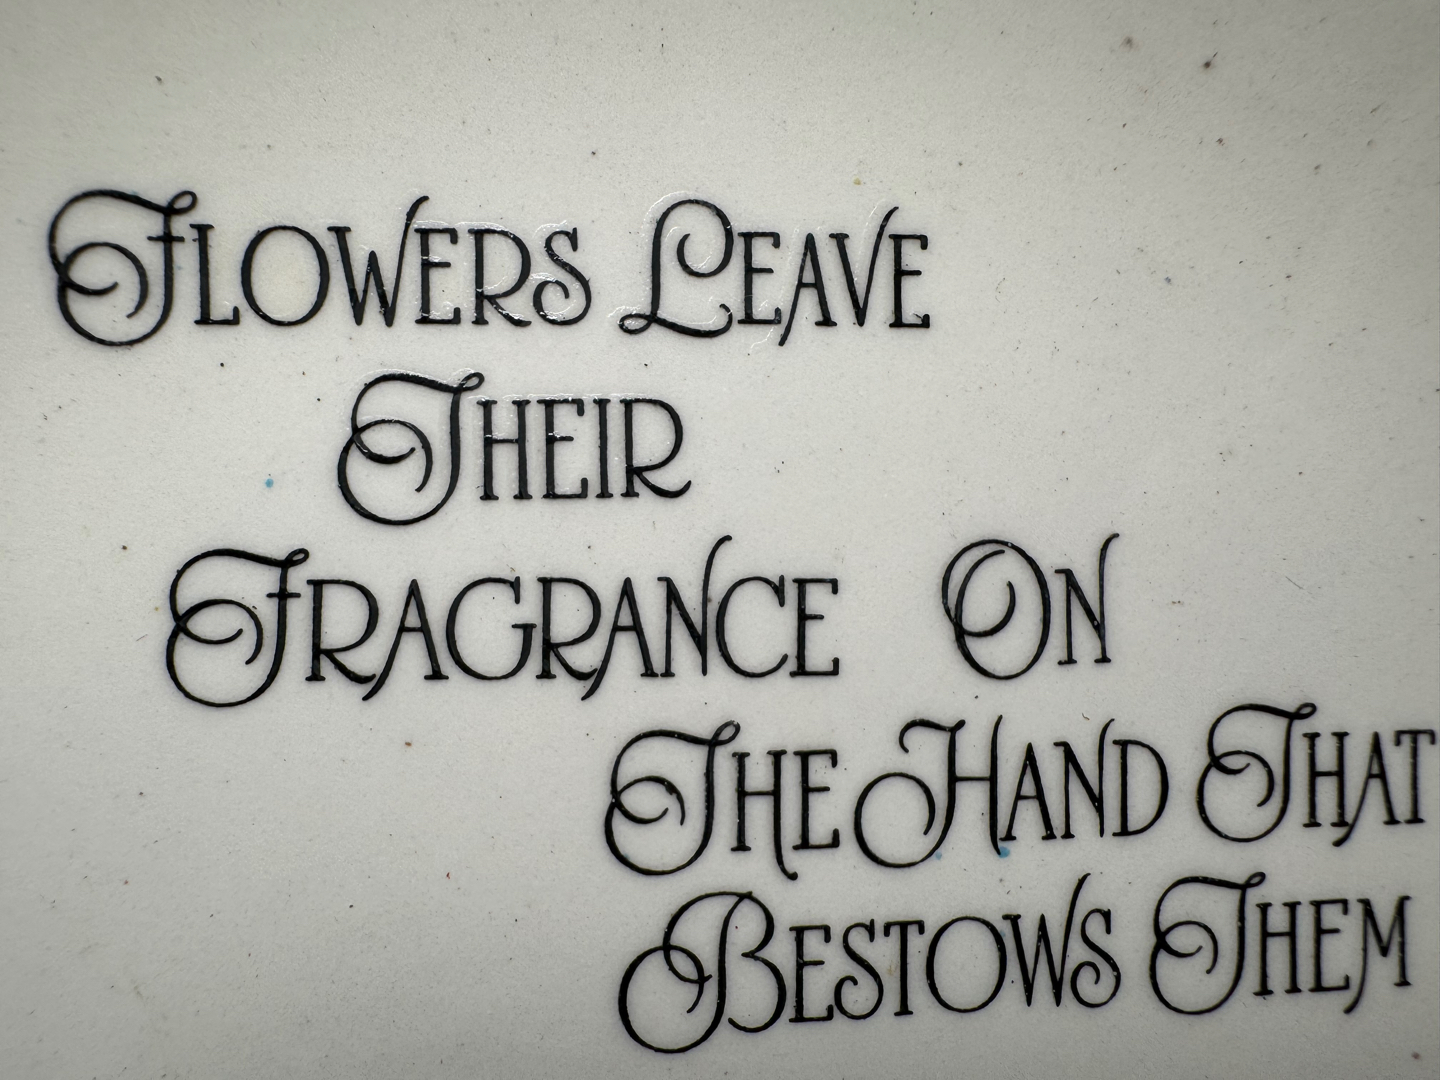 Flowers Leave
Their
Fragrance On
The Hand That
Bestows Them